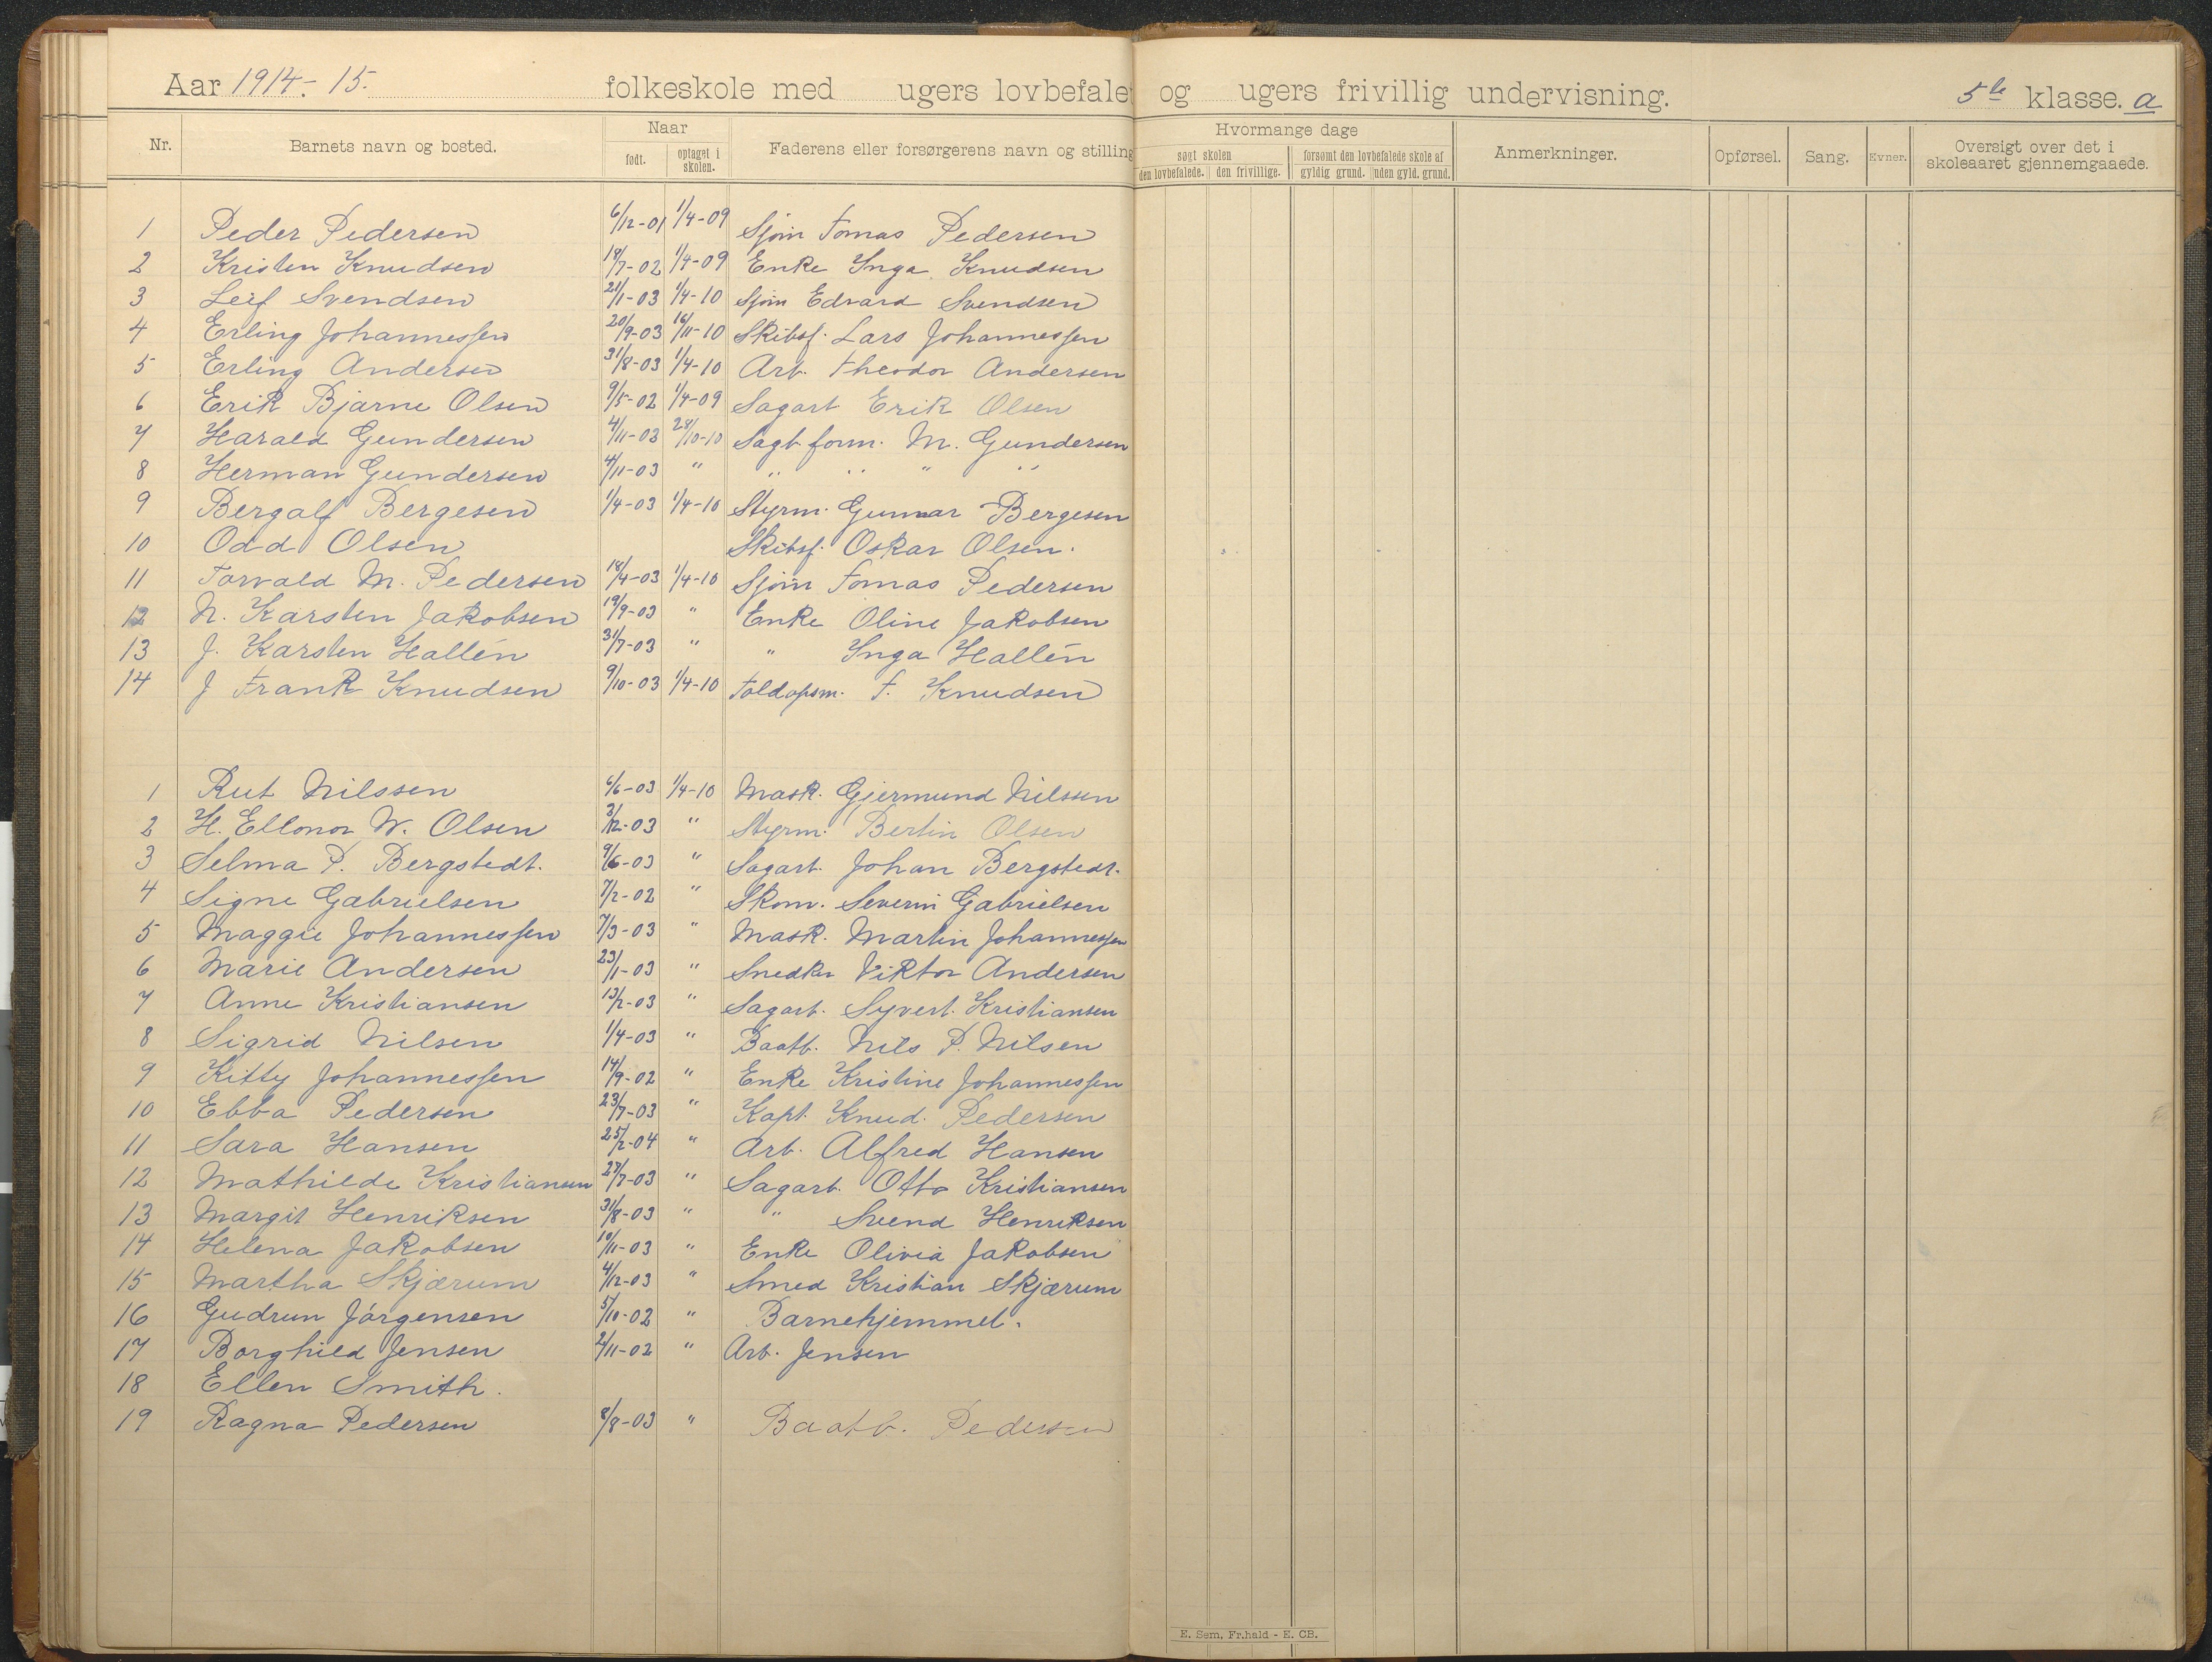 Aar 1914 - 15. folkeskole med ugers lovbefale og ugers frivillig undervisning. 5te klasse. a
Nr. Barnets navn og bosted. Naar født. optaget i skolen. Faderens eller forsørgerens navn og stilling Hvormange dage søgt skolen den lovbefalede. den frivillige. forsømt den lovbefalede skole af gyldig grund. uden gyld. grund. Anmerkninger. Opførsel. Sang. Evner. Oversigt over det i skoleaaret gjennemgaaede.
1 Peder Pedersen 6/12-01 1/4-09 Sjøm Tomas Pedersen
2 Kristen Knudsen 18/7-02 1/4-09 Enke Inga Knudsen
3 Leif Svendsen 21/1-03 1/4-10 Sjøm Edvard Svendsen
4 Erling Johannessen 20/9-03 16/11-10 Skibsf. Lars Johannessen
5 Erling Andersen 31/8-03 1/4-10 Arb. Theodor Andersen
6 Erik Bjarne Olsen 9/5-02 1/4-09 Sagarb Erik Olsen
7 Harald Gundersen 4/11-03 28/10-10 Sagb.form. M. Gundersen
8 Herman Gundersen 4/11-03 " " " " "
9 Bergalf Bergesen 1/4-03 1/4-10 Styrm. Gunnar Bergesen
10 Odd Olsen Skibsf. Oskar Olsen.
11 Torvald M. Pedersen 18/4-03 1/4-10 Sjøm Tomas Pedersen
12 N. Karsten Jakobsen 19/9-03 " Enke Oline Jakobsen
13 J. Karsten Hallén 31/7-03 " " Inga Hallén
14 J Frank Knudsen 9/10-03 1/4-10 Toldopsm. F. Knudsen
1 Rut Nilssen 6/6-03 1/4-10 Mask. Gjermund Nilssen
2 H. Ellonor W. Olsen 3/12-03 " Styrm. Bertin Olsen
3 Selma P. Bergstedt. 9/6-03 " Sagarb. Johan Bergstedt.
4 Signe Gabrielsen 7/2-02 " Skom. Severin Gabrielsen
5 Maggie Johannessen 7/3-03 " Mask. Martin Johannessen
6 Marie Andersen 23/1-03 " Snedker Viktor Andersen
7 Anne Kristiansen 13/2-03 " Sagarb. Syvert. Kristiansen
8 Sigrid Nilsen 1/4-03 " Baatb. Nils P. Nilsen
9 Kitty Johannessen 14/9-02 " Enke Kristine Johannessen
10 Ebba Pedersen 23/7-03 " Kapt. Knud. Pedersen
11 Sara Hansen 25/2-04 " Arb. Alfred Hansen
12 Mathilde Kristiansen 27/7-03 " Sagarb. Otto Kristiansen
13 Margit Henriksen 31/8-03 " " Svend Henriksen
14 Helena Jakobsen 10/11-03 " Enke Olivia Jakobsen
15 Martha Skjærum 4/12-03 " Smed Kristian Skjærum
16 Gudrun Jørgensen 5/10-02 " Barnehjemmet.
17 Borghild Jensen 2/11-02 " Arb. Jensen
18 Ellen Smith.
19 Ragna Pedersen 8/8-03 " Baatb. Pedersen
E. Sem, Fr.hald - E. CB.